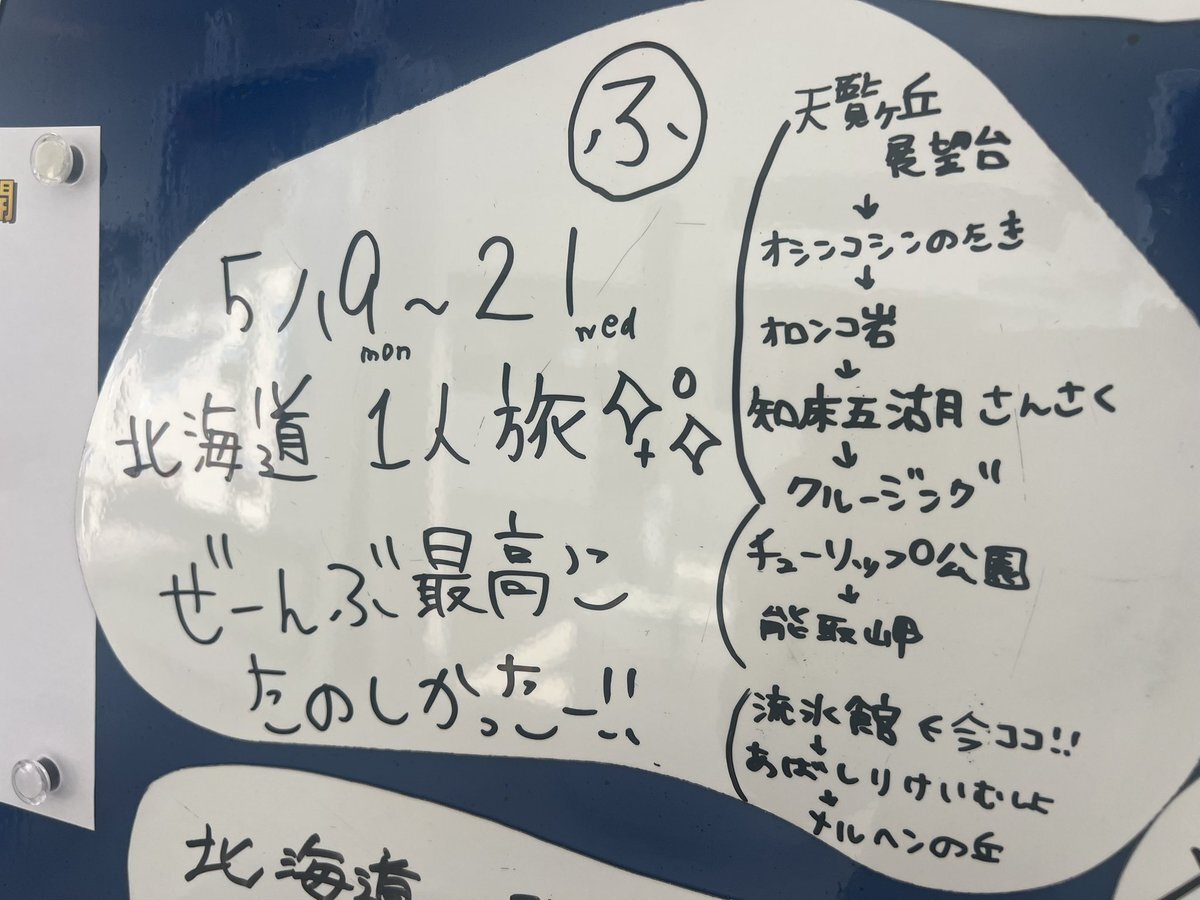 ふ
5/19~21
mon wed
北海道 1人旅
ぜーんぶ最高に
たのしかったー!!
天覧ヶ丘
展望台
↓
オシンコシンのたき
↓
オロンコ岩
↓
知床五湖 さんさく
↓
クルージング
チューリップ公園
↓
能取岬
流氷館 ← 今ココ!!
↓
あばしりけいむしょ
↓
メルヘンの丘
北海道